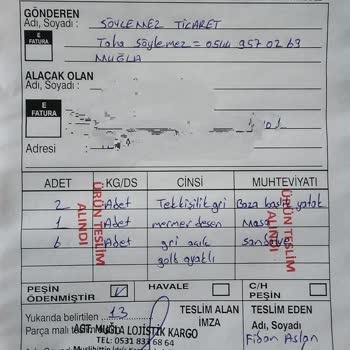 GÖNDEREN
Adı, Soyadı : SÖYLEMEZ TİCARET
E FATURA
Taha Söylemez = 0544 957 02 69
MUĞLA
ALACAK OLAN
Adı, Soyadı :
E FATURA
Adresi :
ADET KG/DS CİNSİ MUHTEVİYATI
2 Adet Tek kişilik gri Baza başlık yatak
1 Adet mermer desen Masa
6 Adet gri açık
ayaklı
ÜRÜN TESLİM ALINDI
ÜRÜN TESLİM ALINDI
PEŞİN ÖDENMİŞTİR
HAVALE
C/H PEŞİN
Yukarıda belirtilen 13
Parça malı
AGT. MUĞLA LOJİSTİK KARGO
TEL: 0531 833 68 64
TESLİM ALAN
İMZA
TESLİM EDEN
Adı, Soyadı
Fidan Aslan